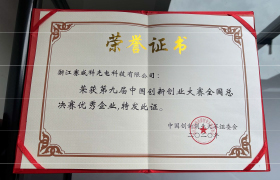 荣誉证书
浙江赛威科光电科技有限公司：
荣获第九届中国创新创业大赛全国总
决赛优秀企业，特发此证。
中国创新创业大赛组委会
二〇二〇年